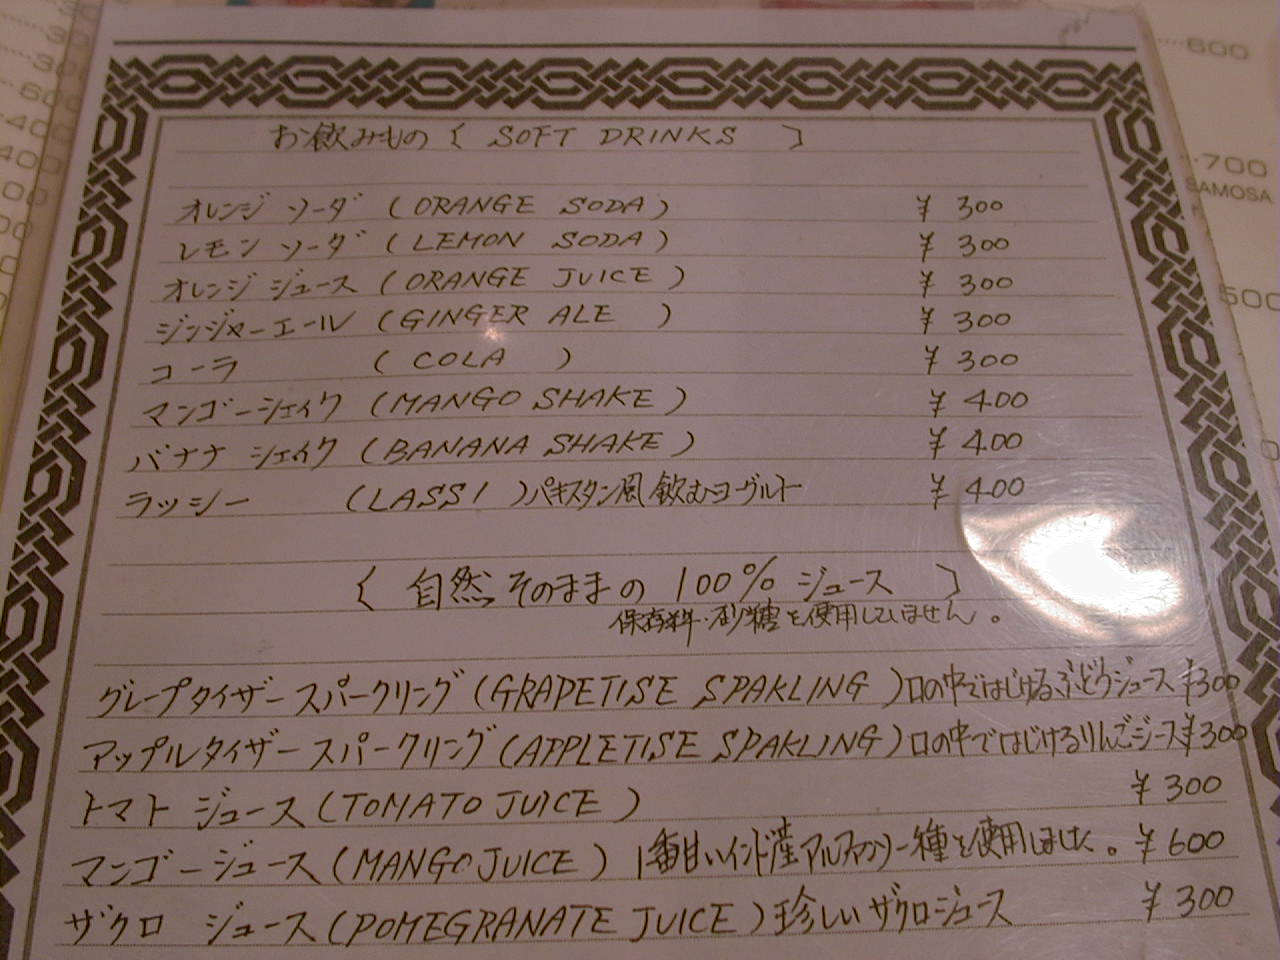 お飲みもの [ SOFT DRINKS ]
オレンジ ソーダ (ORANGE SODA) ¥ 300
レモン ソーダ (LEMON SODA) ¥ 300
オレンジ ジュース (ORANGE JUICE) ¥ 300
ジンジャーエール (GINGER ALE ) ¥ 300
コーラ ( COLA ) ¥ 300
マンゴーシェイク (MANGO SHAKE) ¥ 400
バナナ シェイク (BANANA SHAKE) ¥ 400
ラッシー (LASSI )パキスタン風 飲むヨーグルト ¥ 400
[ 自然そのままの 100% ジュース ]
保存料・砂糖を使用していません。
グレープタイザースパークリング(GRAPETISE SPAKLING)口の中ではじけるぶどうジュース ¥300
アップルタイザースパークリング(APPLETISE SPAKLING)口の中ではじけるりんごジュース ¥300
トマト ジュース(TOMATO JUICE) ¥ 300
マンゴージュース(MANGO JUICE) 1番甘いインド産アルファンソー種を使用しました。 ¥ 600
ザクロ ジュース(POMEGRANATE JUICE)珍しいザクロジュース ¥ 300
600
700
SAMOSA
500
600
400
400